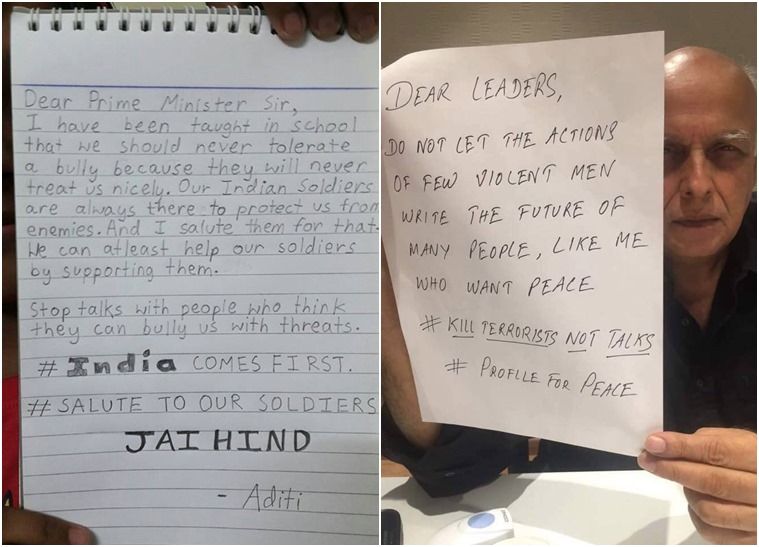 Dear Prime Minister Sir,
I have been taught in school
that we should never tolerate
a bully because they will never
treat us nicely. Our Indian Soldiers
are always there to protect us from
enemies. And I salute them for that.
We can atleast help our soldiers
by supporting them.
Stop talks with people who think
they can bully us with threats.
# India COMES FIRST.
# SALUTE TO OUR SOLDIERS
JAI HIND
- Aditi
DEAR LEADERS,
DO NOT LET THE ACTIONS
OF FEW VIOLENT MEN
WRITE THE FUTURE OF
MANY PEOPLE, LIKE ME
WHO WANT PEACE
# KILL TERRORISTS NOT TALKS
# PROFILE FOR PEACE